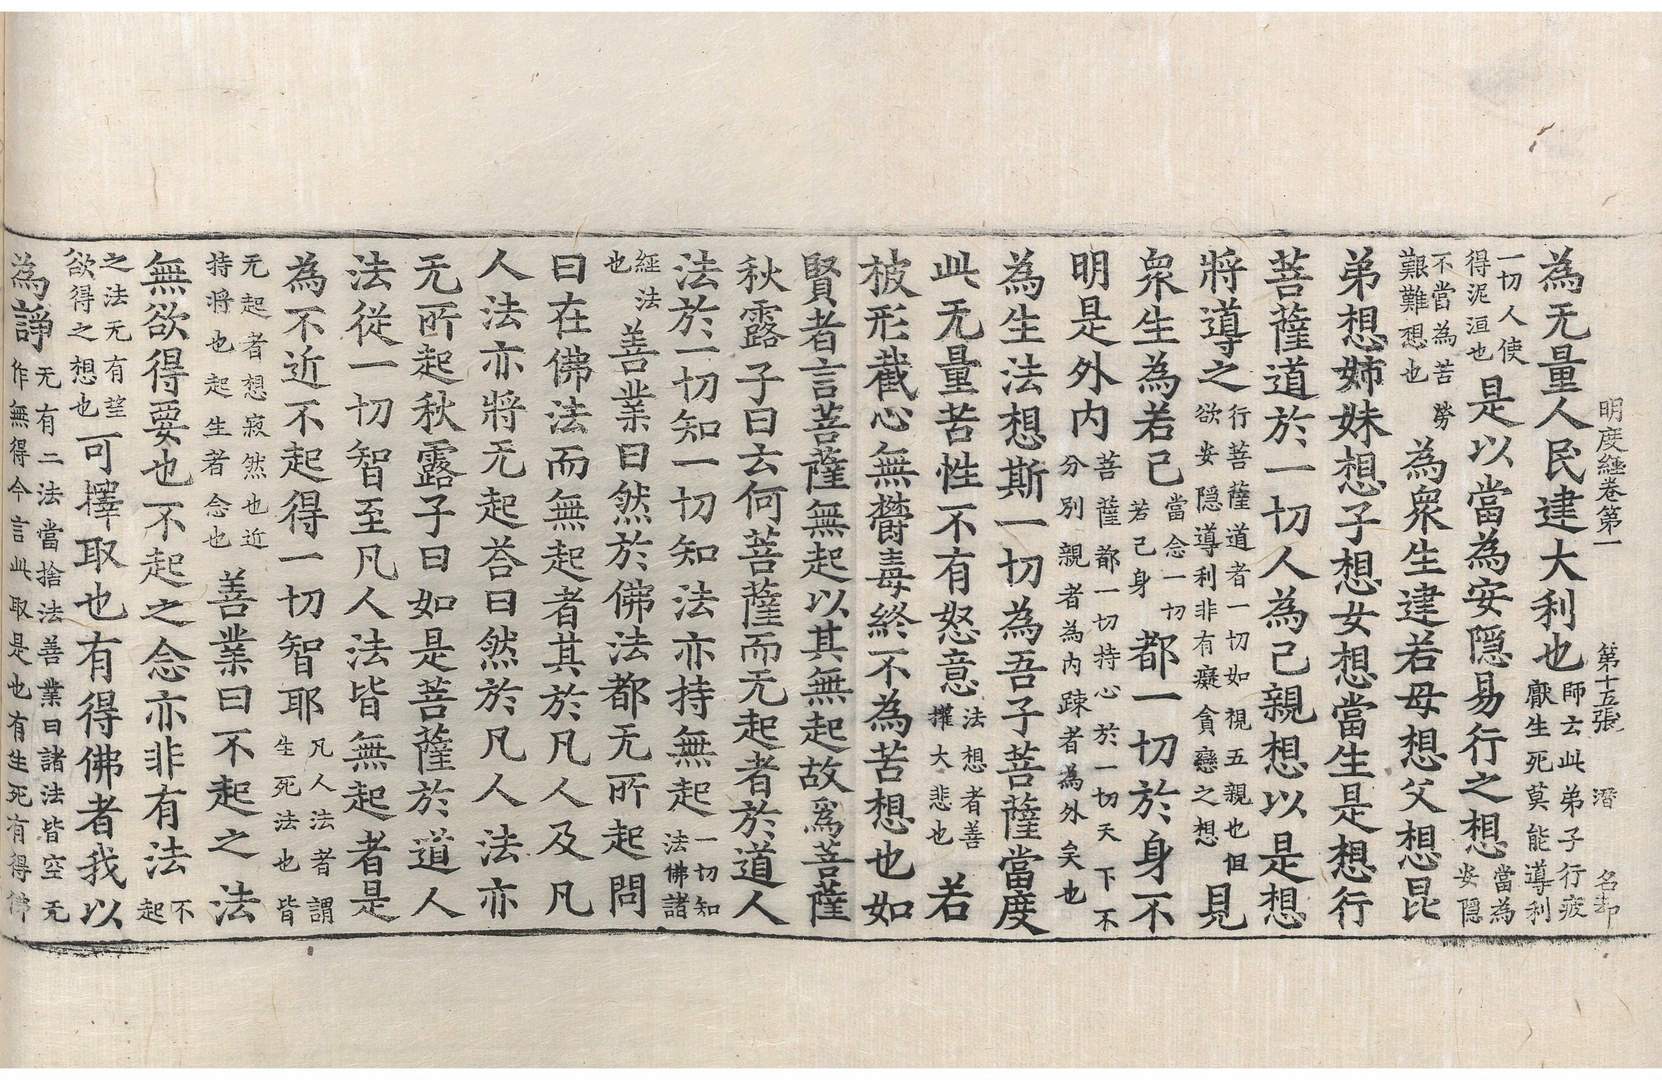 明度經卷第一　第十五張　潛　名却
為无量人民建大利也師云此弟子行疲厭生死莫能導利
一切人使得泥洹也是以當為安隱易行之想當為安隱
不當為苦勞艱難想也為衆生建若母想父想昆
弟想姉妹想子想女想當生是想行
菩薩道於一切人為己親想以是想
將導之行菩薩道者一切如視五親也但欲安隱導利非有癡貪戀之想見
衆生為若己當念一切若己身都一切於身不
明是外内菩薩都一切持心於一切天下不分別親者為内踈者為外矣也
為生法想斯一切為吾子菩薩當度
此无量苦性不有怒意法想者善權大悲也若
披形截心無欝毒終不為苦想也如
賢者言菩薩無起以其無起故為菩薩
秋露子曰云何菩薩而无起者於道人
法於一切知一切知法亦持無起一切知法佛諸
經法也善業曰然於佛法都无所起問
曰在佛法而無起者其於凡人及凡
人法亦將无起荅曰然於凡人法亦
无所起秋露子曰如是菩薩於道人
法從一切智至凡人法皆無起者是
為不近不起得一切智耶凡人法者謂生死法也皆
无起者想寂然也近持將也起生者念也善業曰不起之法
無欲得要也不起之念亦非有法不起
之法无有望欲得之想也可擇取也有得佛者我以
為諍无有二法當捨法善業曰諸法皆空无作無得今言此取是也有生死有得佛